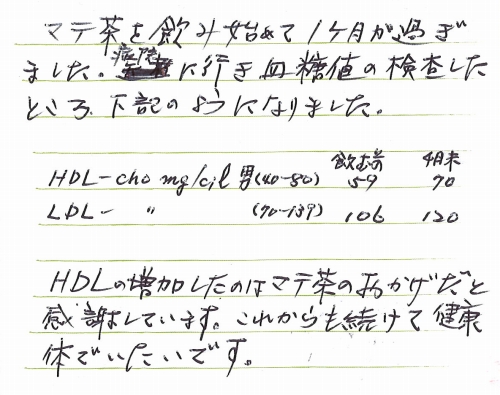 マテ茶を飲み始めて1ヶ月が過ぎ
ました。病院に行き血糖値の検査した
ところ、下記のようになりました。
飲む前 4月末
HDL-cho mg/dl 男(40-80) 59 70
LDL- 〃 (70-139) 106 120
HDLの増加したのはマテ茶のおかげだと
感謝しています。これからも続けて健康
体でいたいです。